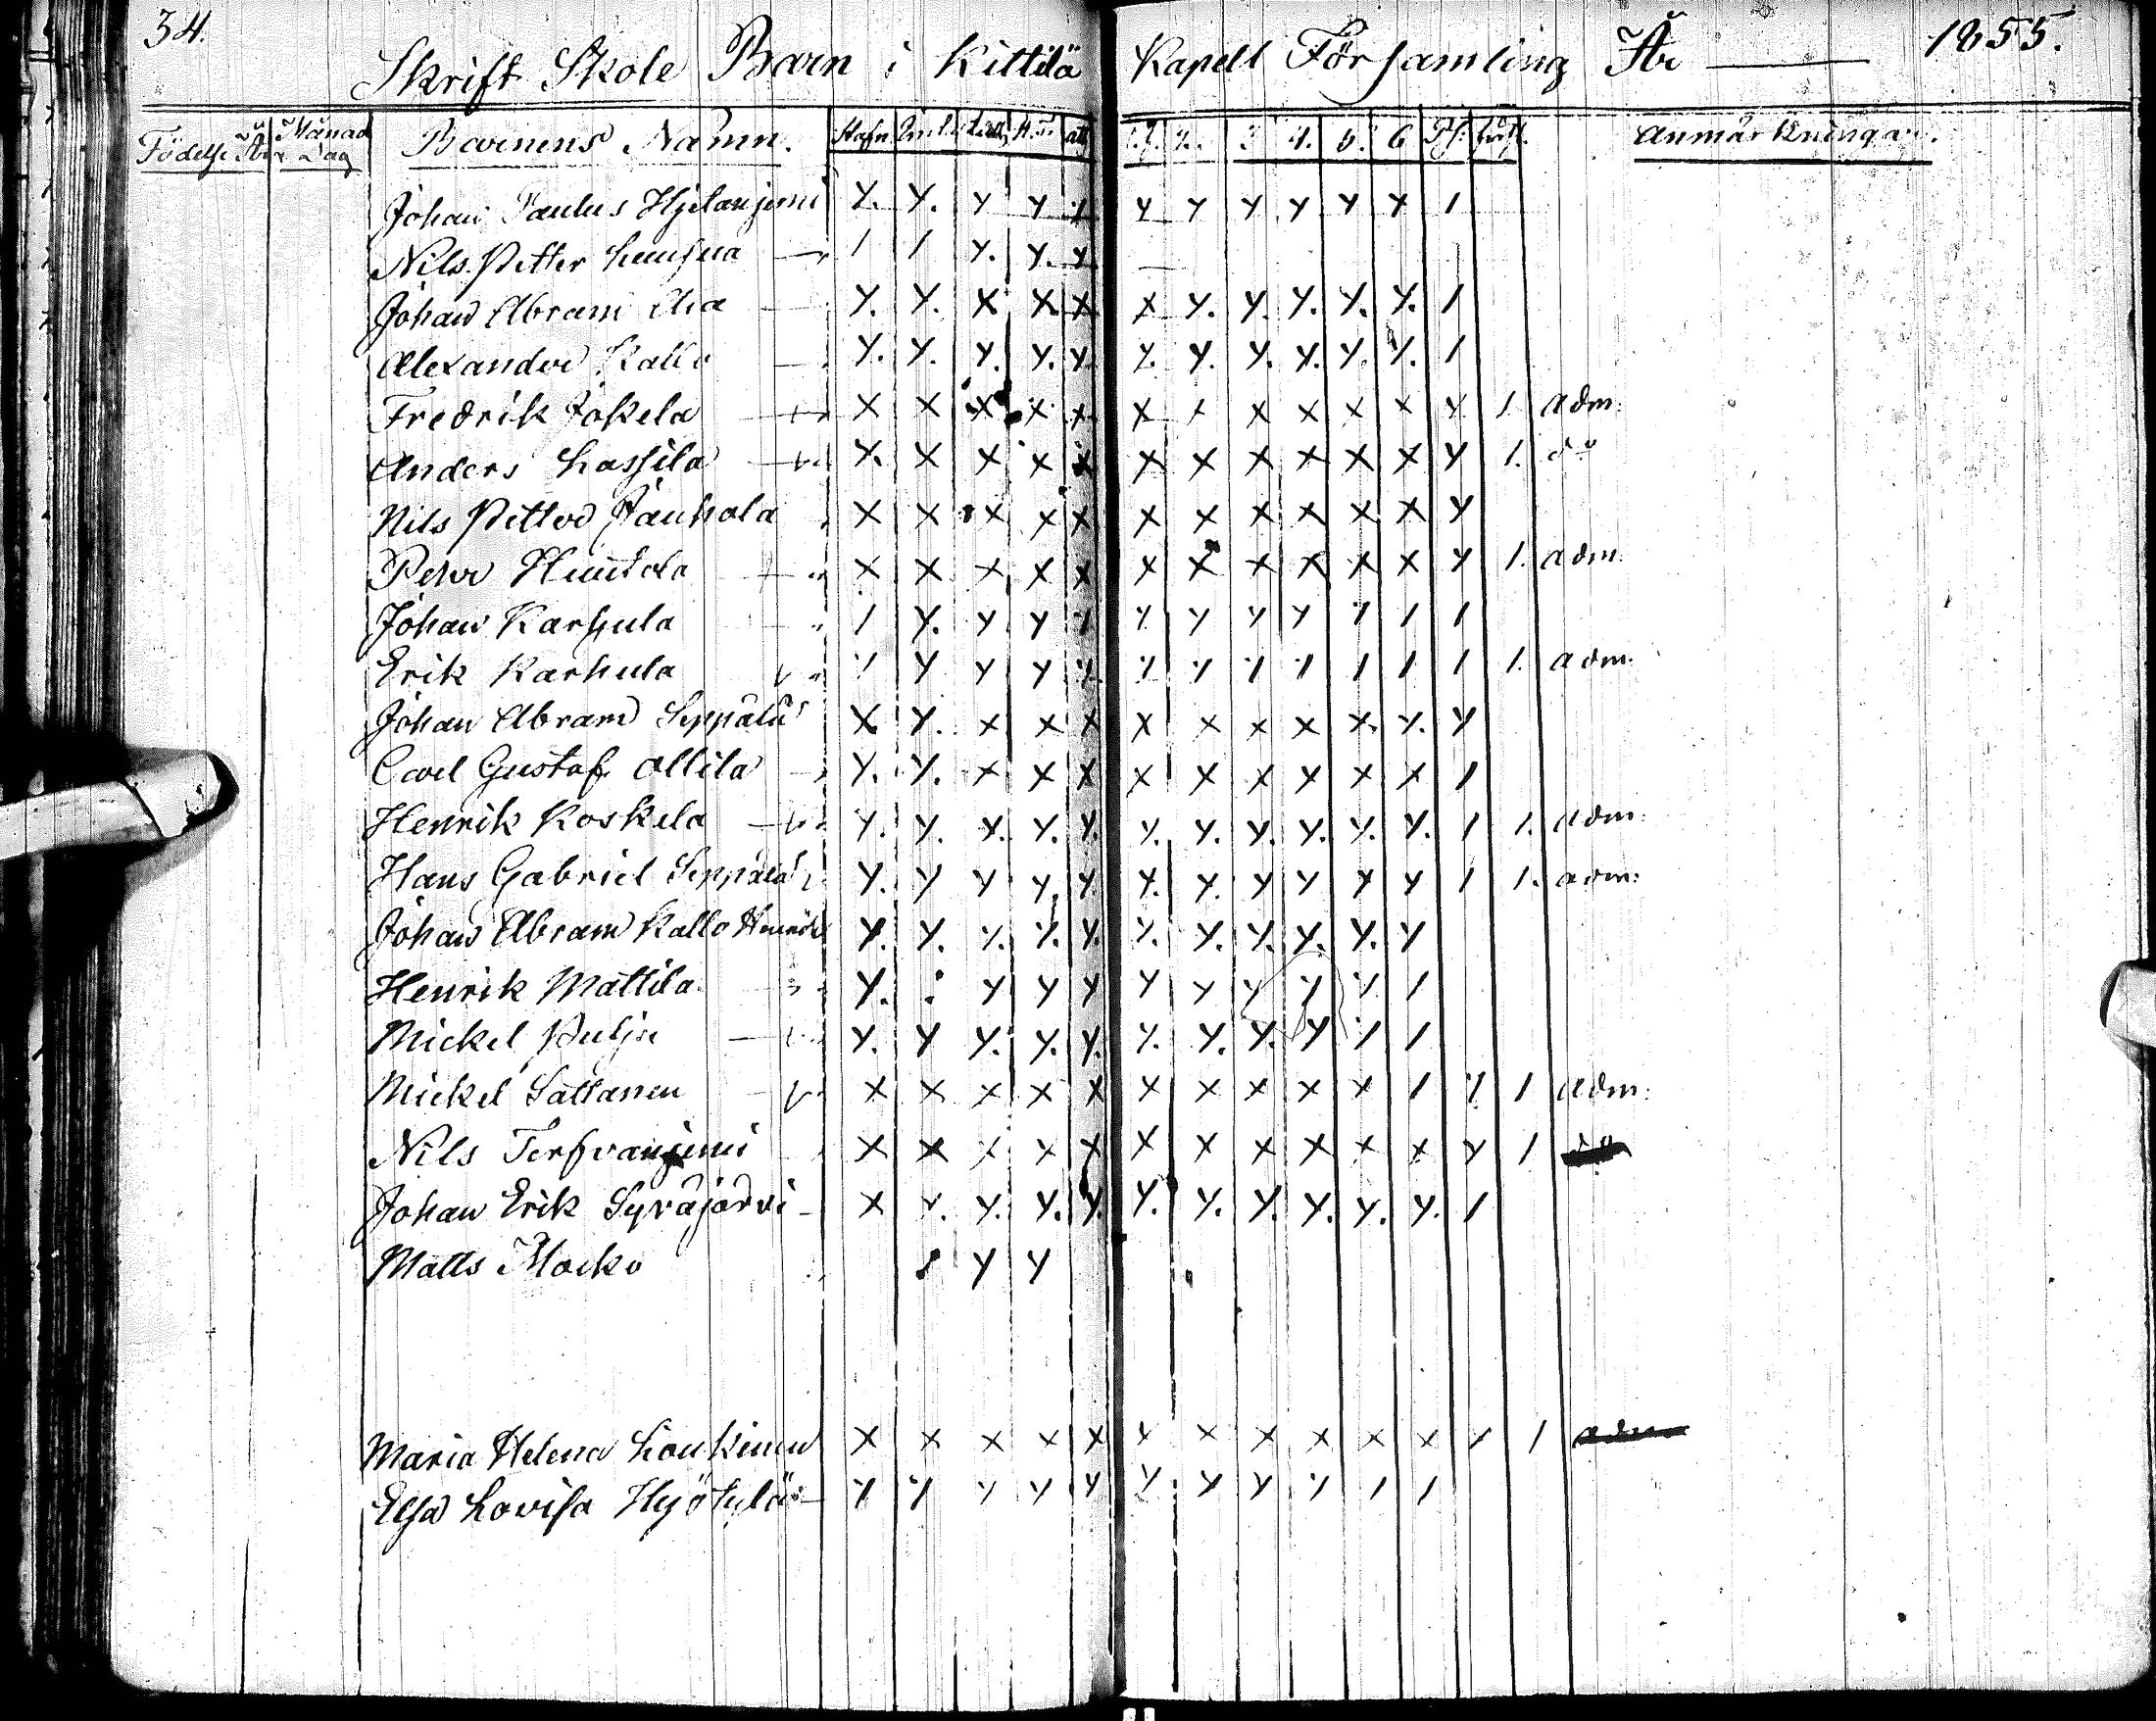 34.
Skrift Skole Barn i Kittilä Kapell Församling År 1855.
Födelse År Månad Dag Barnens Namn. Stafn 1. 2. 3 4. 5. 6 Anmärkningar.
Johan Paulus Hjetanjemi Y. Y. Y Y Y Y Y Y Y Y Y 1
Nils Petter 1 1 Y. Y. Y
Johan Abram Y. Y. X X. X X Y. Y. Y. Y. Y. 1
Alexander Kallo Y. Y. Y. Y. Y. Y. Y. Y. Y. Y. Y. 1
Fredrik Jokela X X X X X X X X X X X Y 1 adm:
Anders Lassila Y. X X X X X X X X X X Y 1. do
Nils Petter Jauhola X X X X X X X X X X X Y
Pehr Huutola X X X X X X X X X X X Y 1. adm.
Johan Karhula 1 Y. Y Y Y Y Y Y Y Y 1 1
Erik Karhula Y Y Y Y Y. Y Y Y Y 1 1 1 1. adm.
Johan Abram Seppälä X Y. X X X X X X X X Y. Y
Carl Gustaf Ollila Y. Y. X X X X X X X X X 1
Henrik Koskela Y. Y. Y. Y. Y. Y. Y. Y. Y. Y. Y. 1 1. adm:
Hans Gabriel Seppälä Y. Y Y Y. Y. Y. Y. Y Y Y Y 1 1. adm:
Johan Abram Kallo Y. Y. Y. Y. Y. Y. Y. Y. Y. Y. Y
Henrik Mattila Y. Y Y Y Y Y Y Y Y 1
Mickel Pulju Y. Y Y. Y. Y. Y. Y. Y. Y Y 1
Mickel Sattanen X X X X X X X X X X 1 Y 1 adm:
Nils Terfvanjemi X X X X X X X X X X X Y 1
Johan Erik Syväjärvi X Y. Y. Y. Y. Y. Y. Y. Y. Y. Y. 1
Matts Y Y
Maria Helena Koukinen X X X X X X X X X X X 1 adm
Elsa Lovisa Hyötylä Y Y Y Y Y Y Y Y Y 1 1